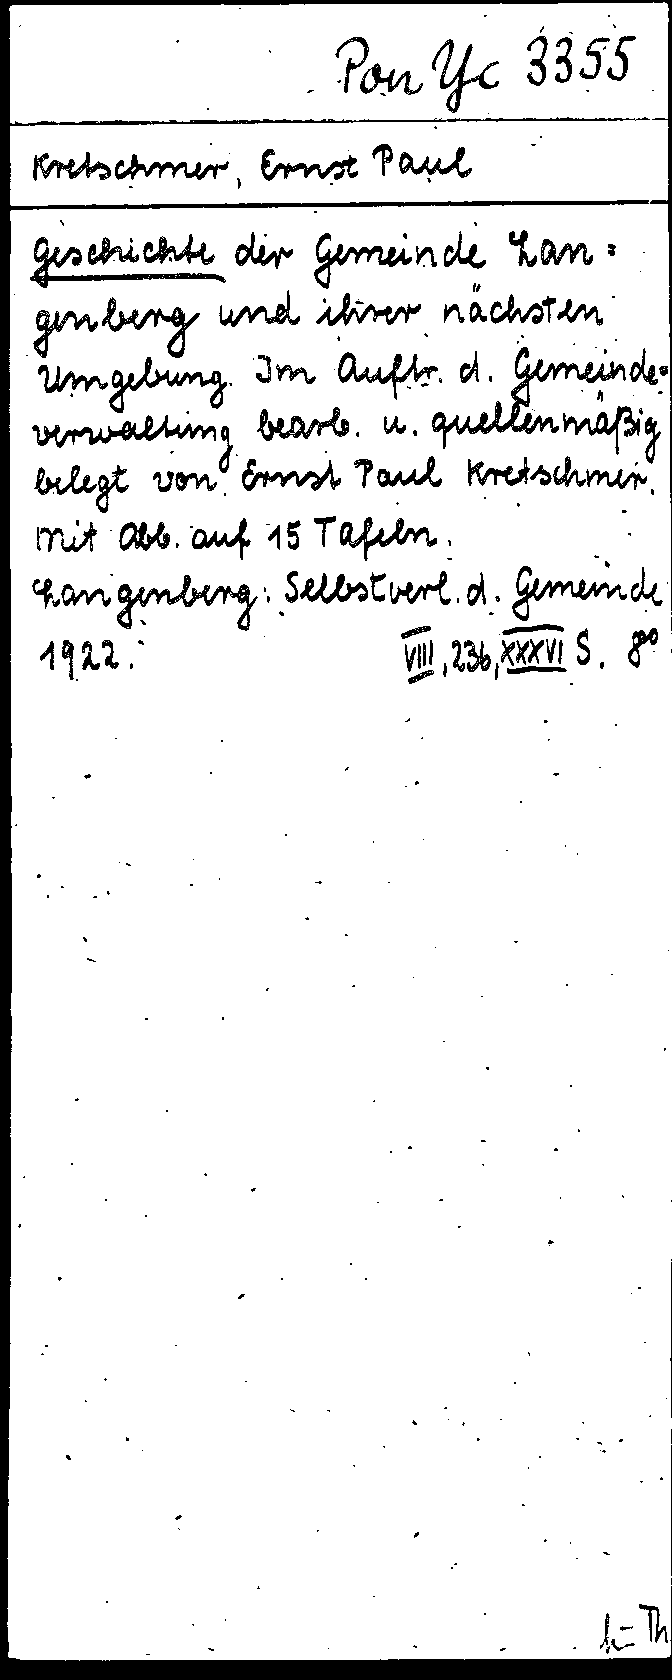 Pon Yc 3355
Kretschmer, Ernst Paul
Geschichte der Gemeinde Lan=
genberg und ihrer nächsten
Umgebung. Im Auftr. d. Gemeinde=
verwaltung bearb. u. quellenmäßig
belegt von Ernst Paul Kretschmer.
Mit Abb. auf 15 Tafeln.
Langenberg: Selbstverl. d. Gemeinde
1922. VIII, 236, XXXVI S. 8°
Th